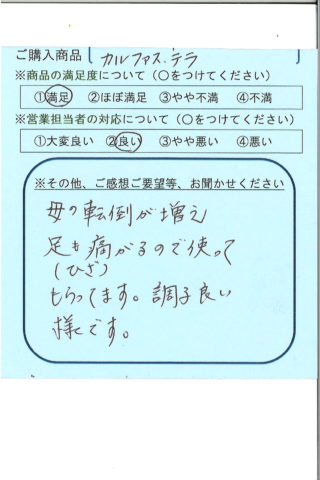 ご購入商品 カルファス・テラ
※商品の満足度について（○をつけてください）
①満足 ②ほぼ満足 ③やや不満 ④不満
※営業担当者の対応について（○をつけてください）
①大変良い ②良い ③やや悪い ④悪い
※その他、ご感想ご要望等、お聞かせください
母の転倒が増え
足も痛がるので使って
(ひざ)
もらってます。調子良い
様です。